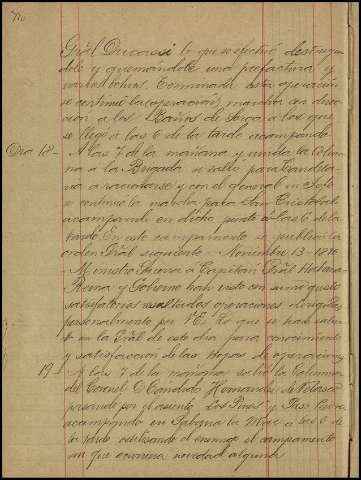 Gral Ducassi lo que se efectuó destruyen
dole y quemándole una prefectura y
varios bohios. Terminada esta operación
se continuó la operacion marcha en direc
cion a los Baños de Soroa a los que
se llegó a las 6 de la tarde acampando
Dia 18 — A las 7 de la mañana y unida la Colum
na á la Brigada, se salió para Candela
ria a racionarse y con el general en Jefe
se continuó la marcha para San Cristobal
acampando en dicho punto á las 6 de la
tarde. En este campamento se publicó la
orden Gral siguiente - Noviembre 13-1896
- Ministro Guerra a Capitan Gral Habana
Reina y Gobierno han visto con sumo gusto
satisfatorios resultados operaciones dirigidas
personalmente por V.E. Lo que se hace saber
en la Gral de este dia para conocimiento
y satisfaccion de las tropas de operaciones
19 - A las 7 de la mañana salió la Columna
del Coronel D Candido Hernandez de Velasco
pasando por el asiento, Los Pinos y Rio
acampando en Sabana la Mar a las 6 de
la tarde, el enemigo el campamento
sin que ocurriera novedad alguna